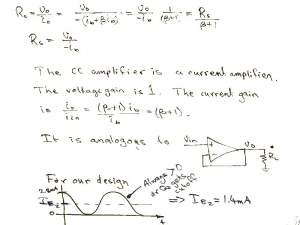 Ro = vo/io = vo/-(ib+βib) = vo/-ib 1/(β+1) = Rs/β+1
Rs = vo/-ib
The CC amplifier is a current amplifier.
The voltage gain is 1. The current gain
is io/iin = (β+1)ib/ib = (β+1).
It is analogous to Vin
Vo
RL
For our design
Always > 0
or Q2 gets
cutoff.
2.8mA
IE2
0
t
⇒ IE2 = 1.4mA